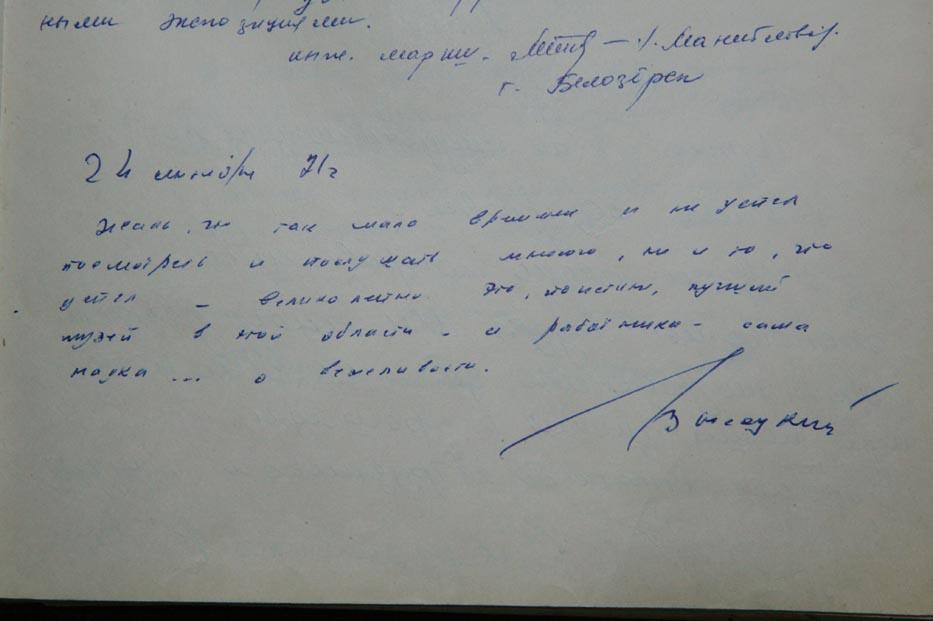 ными экспозициями.
инж. марш.
г. Белозёрск
24 октября 71г
Жаль, что так мало времени и не успел
посмотреть и послушать многого, но и то, что
успел – великолепно. Это, поистине, лучший
музей в этой области – а работники – сама
наука ... о вежливости.
Высоцкий